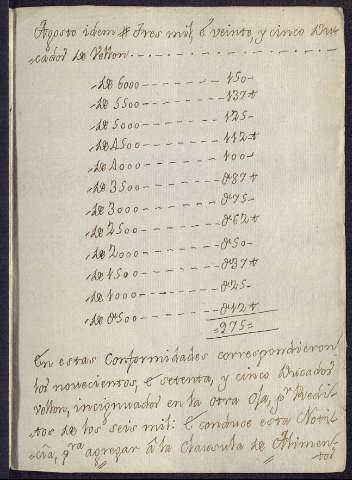 Agosto idem # Tres mil, é veinte, y cinco Du-
-cados de Vellon
-de 6000 - - - - - 150-
-de 5500 - - - - - 137+
-de 5000 - - - - - 125-
-de 4500 - - - - - 112+
-de 4000 - - - - - 100-
-de 3500 - - - - - 087+
-de 3000 - - - - - 075-
-de 2500 - - - - - 062+
-de 2000 - - - - - 050-
-de 1500 - - - - - 037+
-de 1000 - - - - - 025-
-de 0500 - - - - - 012+
=975=
En estas Conformidades correspondieron
los novecientos, é setenta, y cinco Ducados
vellon, incignuados en la otra Oja, pr. Redi-
-tos de los seis mil: é conduce esta Noti-
-cia, pra. agregar â la Clausula de Alimen-
tos